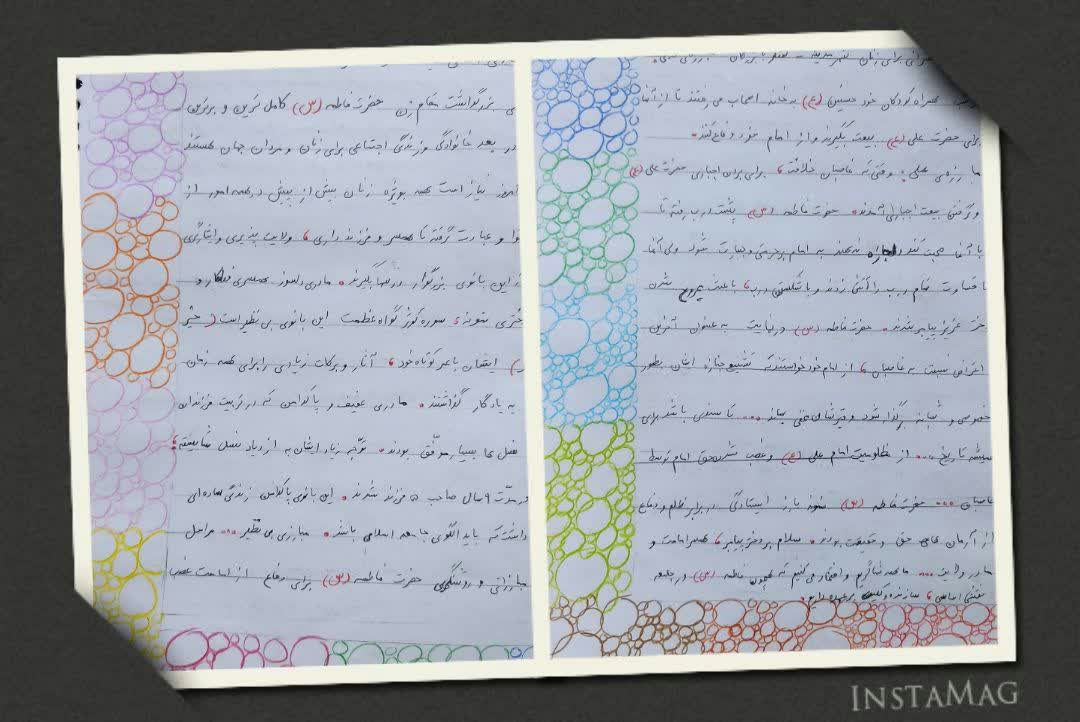 بزرگداشت مقام زن حضرت فاطمه (س) کامل ترین و برترین
در بعد خانوادگی و زندگی اجتماعی برای زنان و مردان جهان هستند
امروز نیاز است همه بویژه زنان بیش از پیش در همه امور از
و عبادت گرفته تا همسر و فرزند داری، ولایت پذیری و ایثارگری
از این بانوی بزرگوار درسها بگیرند. مادری دلسوز همسری فداکار و
دختری نمونه، سوره کوثر گواه عظمت این بانوی بی نظیر است (خیر
ایشان با عمر کوتاه خود، آثار و برکات زیادی را برای همه زمان
به یادگار گذاشتند. مادری عفیف و پاکدامن که در تربیت فرزندان
بسیار موفق بودند. توجه زیاد ایشان به ازدیاد نسل شایسته،
در مدت ۹ سال صاحب ۵ فرزند شدند. این بانوی پاکدامن زندگی ساده ای
داشت که باید الگوی جامعه اسلامی باشد. مبارزی بی نظیر ... مراحل
مبارزاتی و روشنگری حضرت فاطمه (س) برای دفاع از امامت
همراه کودکان خود حسنین (ع) به خانه اصحاب می رفتند تا از آنها
برای حضرت علی (ع) بیعت بگیرند و از امام خود دفاع کنند.
مبارزه ی عملی: وقتی که غاصبان خلافت، برای بردن اجباری حضرت علی (ع)
و گرفتن بیعت اجباری آمدند. حضرت فاطمه (س) پشت در رفته تا
با آنها صحبت کند و اجازه ندهند به امام بی حرمتی و جسارت شود ولی آنها
با قساوت تمام درب را آتش زدند و با شکستن درب، باعث مجروح شدن
دختر عزیز پیامبر شدند. حضرت فاطمه (س) در نهایت به عنوان آخرین
اعتراض نسبت به غاصبان، از امام خود خواستند که تشییع جنازه ایشان بطور
خصوصی و شبانه برگزار شود و قبرشان مخفی بماند ... تا سندی باشد برای
همیشه تاریخ ... از مظلومیت امام علی (ع) و غصب شدن حق امام توسط
غاصبان ... حضرت فاطمه (س) نمونه بارز ایستادگی در برابر ظلم و دفاع
از آرمان های حق و حقیقت بودند. سلام بر دختر پیامبر، همسر امامت و
مادر ولایت ... ما همه و افتخار می کنیم که همچون فاطمه (س) در جامعه
نقشی اساسی، سازنده و برعهده داریم.
INSTAMAG